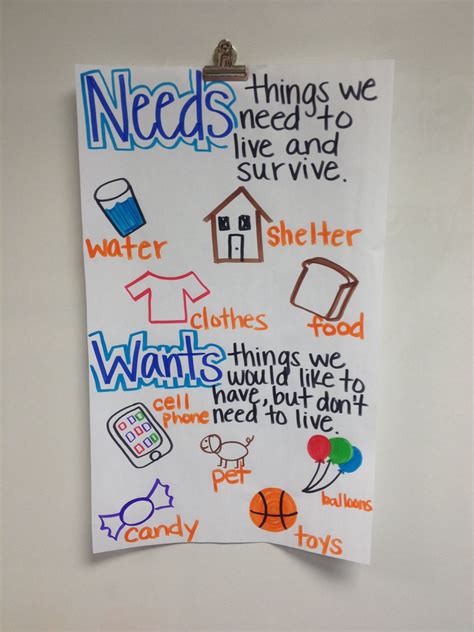 Needs things we
need to
live and
survive.
water
shelter
clothes
food
Wants things we
would like to
have, but don't
need to live.
cell
phone
pet
balloons
candy
toys